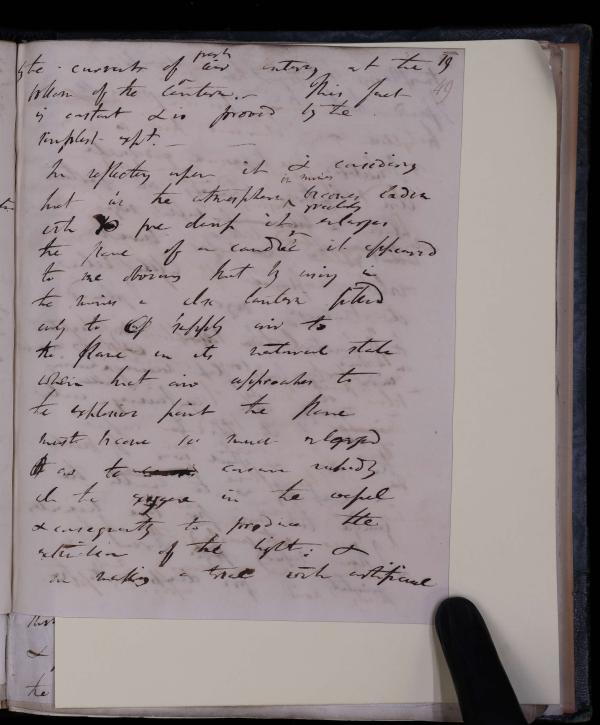 by the currents of fresh air entering at the 19
bottom of the lantern. – This fact 49
is constant & is proved by the
simplest expt. –
In reflecting upon it & considering
that as the atmosphere in mines becomes laden
with fire damp it greatly enlarges
the flame of a candle it appeared
to me obvious that by using in
the mines a close lantern fitted
only to supply air to
the flame in its natural state
when that air approaches to
the explosive point the flame
must become so much enlarged
as to consume rapidly
all the oxygene in the vessel
& consequently to produce the
extinction of the light: &
on making a trial with artificial
&
the